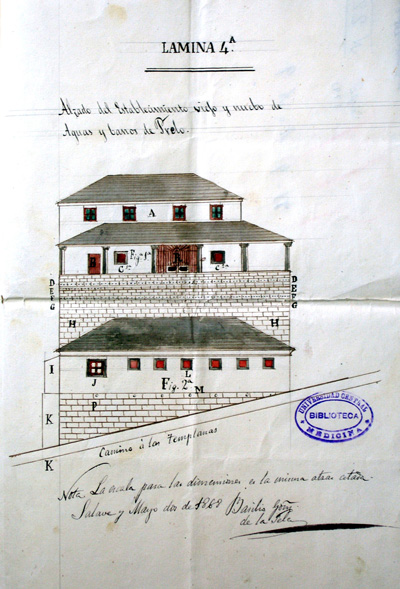 LAMINA 4ª.
Alzado del Establecimiento viejo y nuebo de
Aguas y banos de Prelo.
A
Fig. 1ª
C
C
D D
E E
F F
G G
H H
I
J
L
Fig. 2ª
M
P
K
K
Camino á las Templanas
UNIVERSIDAD CENTRAL
BIBLIOTECA
MEDICINA
Nota. La escala para las dimensiones es la misma atras citada.
Salave y Mayo dos de 1868 Basilio
de la